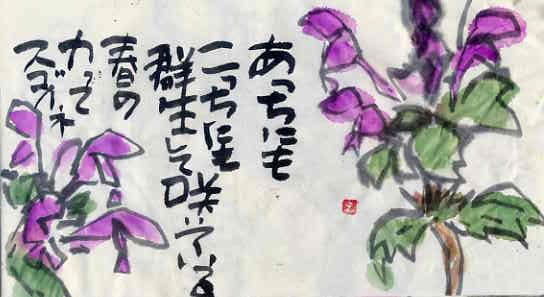 あっちにも
こっちにも
群生して咲いている
春の
力って
スゴイネ